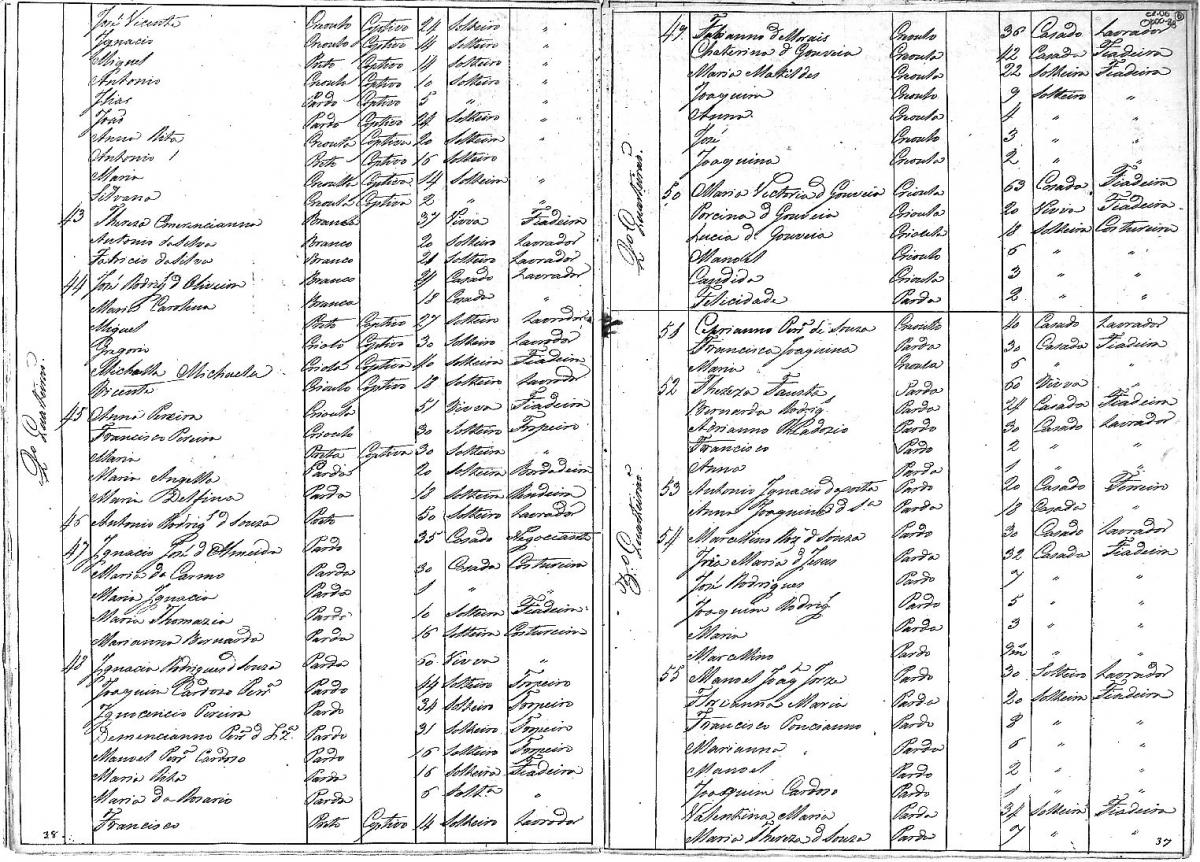 José Vicente Crioulo Captivo 24 Solteiro "
Ignacio Crioulo Captivo 14 Solteiro "
Miguel Preto Captivo 14 Solteiro "
Antonio Crioulo Captivo 10 Solteiro "
Isias Pardo Captivo 5 " "
João Pardo Captivo 24 Solteiro "
Anna Rita Crioula Captiva 20 Solteira "
Antonio Preto Captivo 16 Solteiro
Maria Crioulla Captiva 14 Solteira "
Silvana Crioula Captiva 2 "
43 Thereza Emerencianna Branca 37 Viova Fiadeira
Antonio da Silva Branco 20 Solteiro Lavrador
Fabricio da Silva Branco 21 Solteiro Lavrador
44 José Rodrigˢ d Oliveira Branco 29 Casado Lavrador
Maria Carolina Branca 18 Casada "
Miguel Preto Captivo 27 Solteiro Lavrador
Gregorio Criolo Captivo 30 Solteiro Lavrador
Michaella Michaella Criola Captiva 40 Solteira Fiadeira
Vicente Crioulo Captivo 18 Solteiro Lavrador
2o Quarteirao.
45 Anna Pereira Crioula 51 Viova Fiadeira
Francisco Pereira Crioulo 30 Solteiro Tropeiro
Maria Preta Captiva 30 Solteira "
Maria Angella Parda 20 Solteira Bordadeira
Maria Delfina Parda 18 Solteira Rendeira
46 Antonio Rodrigˢ d Souza Preto 50 Solteiro Lavrador
47 Ignacio José d Almeida Pardo 35 Casado Negociante
Maria do Carmo Parda 30 Casada Costureira
Maria Ignacia Parda 1 " "
Maria Thomazia Parda 10 Solteira Fiadeira
Marianna Bernarda Parda 16 Solteira Costureira
48 Ignacia Rodrigues d Souza Parda 60 Viova "
Joaquim Cardozo Perª Pardo 44 Solteiro Tropeiro
Ignocencio Pereira Pardo 34 Solteiro Tropeiro
Demencianno Perª d Pardo 31 Solteiro Tropeiro
Manoel Perª Cardozo Pardo 16 Solteiro Tropeiro
Maria Rita Parda 16 Solteira Fiadeira
Maria do Rosario Parda 6 Soltra "
Francisco Preto Captivo 14 Solteiro Lavrador
38
49 Fabianno d Morais Crioulo 36 Casado Lavrador
Chaterina d Gouveia Crioula 42 Casada Fiadeira
Maria Matildes Crioula 22 Solteira Fiadeira
Joaquim Crioulo 9 Solteiro "
Anna Crioula 4 " "
José Crioulo 3 " "
Joaquina Crioula 2 " "
2o Quarteirao.
50 Maria Victoria d Gouveia Crioula 63 Casada Fiadeira
Porcina d Gouveia Crioula 20 Viova Fiadeira
Lucia d Gouveia Crioula 18 Solteira Costureira
Manoel Crioulo 6 " "
Candida Crioula 3 " "
Felicidade Parda 2 " "
51 Ciprianno Perª de Souza Crioulo 40 Casado Lavrador
Francisca Joaquina Parda 30 Casada Fiadeira
Maria Crioula 6 " "
52 Thereza Fausta Parda 60 Viova "
Bernarda Rodrigˢ Parda 24 Casada Fiadeira
Adrianno Pardo 30 Casado Lavrador
Francisco Pardo 2 " "
Anna Parda 1 " "
3.o Quarteirao
53 Antonio Ignacio da Costa Pardo 20 Casado Ferreiro
Anna Joaquina d Sa Parda 18 Casada "
54 Marcelino Roiz d Souza Pardo 30 Casado Lavrador
Iria Maria d Jesus Parda 32 Casada Fiadeira
José Rodrigues Pardo 7 " "
Joaquim Rodrigˢ Pardo 5 " "
Maria Parda 3 " "
Marcelino Pardo 9m "
55 Manoel Joaqᵐ Jorze Pardo 30 Solteiro Lavrador
Florianna Maria Parda 20 Solteira Fiadeira
Francisco Poncianno Pardo 8 " "
Marianna Parda 6 " "
Manoel Pardo 2 " "
Joaquim Cardozo Pardo 1 " "
Valentina Maria Parda 34 Solteira Fiadeira
Maria Thereza d Souza Parda 7 " "
37